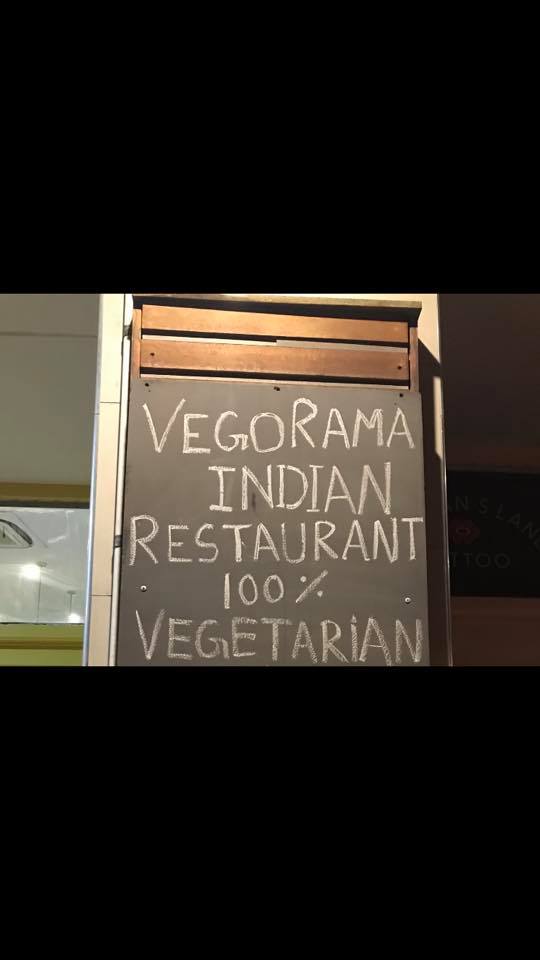 VEGORAMA
INDIAN
RESTAURANT
100%
VEGETARIAN